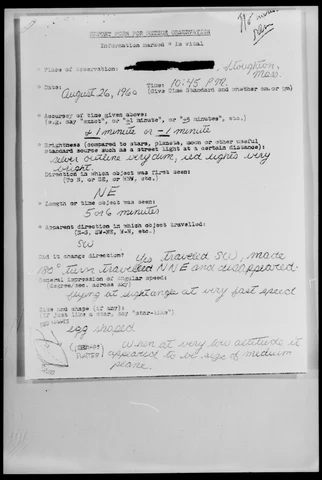 REPORT FORM FOR OBJECT OBSERVATION
Information marked * is vital
* Place of Observation: Stoughton,
Mass.
* Date: Time: 10:45 P.M.
August 26, 1960 (Give Time Standard and whether am or pm)
* Accuracy of time given above:
(e.g. say "exact", or "±1 minute", or "±5 minutes", etc.)
+1 minute or -1 minute
* Brightness (compared to stars, planets, moon or other useful
standard source such as a street light at a certain distance):
silver outline very dim, red lights very
bright.
Direction in which object was first seen:
(To N, or SE, or NSW, etc.)
NE
* Length or time object was seen:
5 or 6 minutes
* Apparent direction in which object travelled:
(E-S, SW-NE, W-N, etc.)
SW
Did it change direction? Yes traveled SW, made
180° turn traveled NNE and disappeared.
General impression of angular speed:
(degree/sec. across sky)
flying at right angle at very fast speed
Size and shape (if any):
(If just like a star, say "star-like")
egg shaped
When at very low altitude it
appeared to be size of medium
plane.